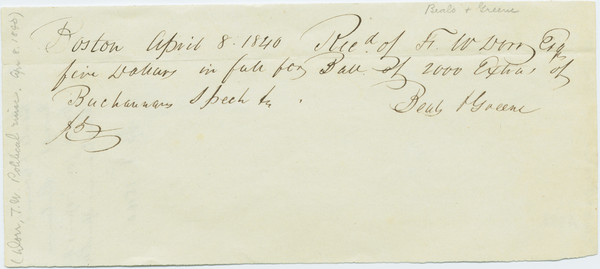 Beals & Greene
Boston April 8. 1840 Rec'd. of T. W Dorr Esq
five Dollars in full for Ball. of 2000 Extras of
Buchannans Speech &c .
Beals & Greene
$5
(Dorr, T.W Political misc. Apr. 8. 1840)